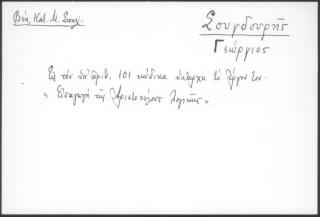 Βέη, Κατ. Μ. Σκηλ.
Σουγδουρῆς
Γεώργιος
Εἰς τὸν ὑπ' ἀριθ. 101 κώδικα ὑπάρχει τὸ ἔργον του
« Εἰσαγωγὴ τῆς Ἀριστοτέλους λογικῆς ».